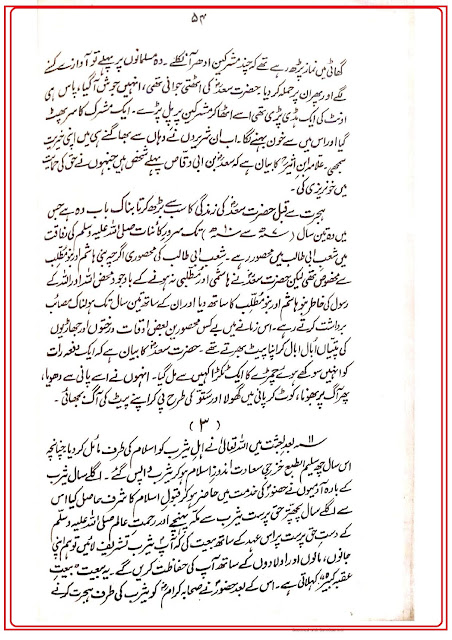 ۵۴
گھاٹی میں نماز پڑھ رہے تھے کہ چند مشرکین ادھر آ نکلے۔ وہ مسلمانوں پر پہلے تو آوازے کسنے
لگے اور پھر ان پر حملہ کر دیا۔ حضرت سعدؓ کی اٹھتی جوانی تھی، انہیں جوش آ گیا، پاس ہی
اونٹ کی ایک ہڈی پڑی تھی اسے اٹھا کر مشرکین پر پل پڑے۔ ایک مشرک کا سر پھٹ
گیا اور اس میں سے خون بہنے لگا۔ اب ان شریروں نے وہاں سے بھاگنے ہی میں اپنی خیریت
سمجھی۔ علامہ ابن اثیرؒ کا بیان ہے کہ سعدؓ بن ابی وقاص پہلے شخص ہیں جنہوں نے حق کی حمایت
میں خونریزی کی۔
ہجرت سے قبل حضرت سعدؓ کی زندگی کا سب سے بڑھ کر تابناک باب وہ ہے جس
میں وہ تین سال (۷ سے ۱۰ تک) سرور کائنات صلی اللہ علیہ وسلم کی رفاقت
میں شعب ابی طالب میں محصور رہے۔ شعب ابی طالب کی محصوری اگرچہ بنی ہاشم اور بنو مطلب
سے مخصوص تھی لیکن حضرت سعدؓ نے ہاشمی اور مطلبی نہ ہونے کے باوجود محض اللہ اور اللہ کے
رسول کی خاطر بنو ہاشم اور بنو مطلب کا ساتھ دیا اور ان کے ساتھ تین سال تک ہولناک مصائب
برداشت کرتے رہے۔ اس زمانے میں بے کس محصورین بعض اوقات درختوں اور جھاڑیوں
کی پتیاں اُبال اُبال کر اپنا پیٹ بھرتے تھے۔ حضرت سعدؓ کا بیان ہے کہ ایک دفعہ رات
کو انہیں سوکھے ہوئے چمڑے کا ایک ٹکڑا کہیں سے مل گیا۔ انہوں نے اسے پانی سے دھویا،
پھر آگ پر بھونا، کوٹ کر پانی میں گھولا اور ستو کی طرح پی کر اپنے پیٹ کی آگ بجھائی۔
(۳)
۱۱ بعدِ بعثت میں اللہ تعالیٰ نے اہلِ یثرب کو اسلام کی طرف مائل کر دیا چنانچہ
اس سال چھ سلیم الطبع خزرجی سعادت اندوزِ اسلام ہو کر یثرب واپس گئے۔ اگلے سال یثرب
کے بارہ آدمیوں نے حضورؐ کی خدمت میں حاضر ہو کر قبولِ اسلام کا شرف حاصل کیا اس
سے اگلے سال پچھتر حق پرست یثرب سے مکہ پہنچے اور رحمتِ عالم صلی اللہ علیہ وسلم
کے دستِ حق پرست پر اس عہد کے ساتھ بیعت کی کہ آپ یثرب تشریف لائیں تو ہم اپنی
جانوں، مالوں اور اولادوں کے ساتھ آپ کی حفاظت کریں گے۔ یہ بیعت "بیعتِ
عقبہ کبیرہ" کہلاتی ہے۔ اس کے بعد حضورؐ نے صحابہ کرامؓ کو یثرب کی طرف ہجرت کرنے